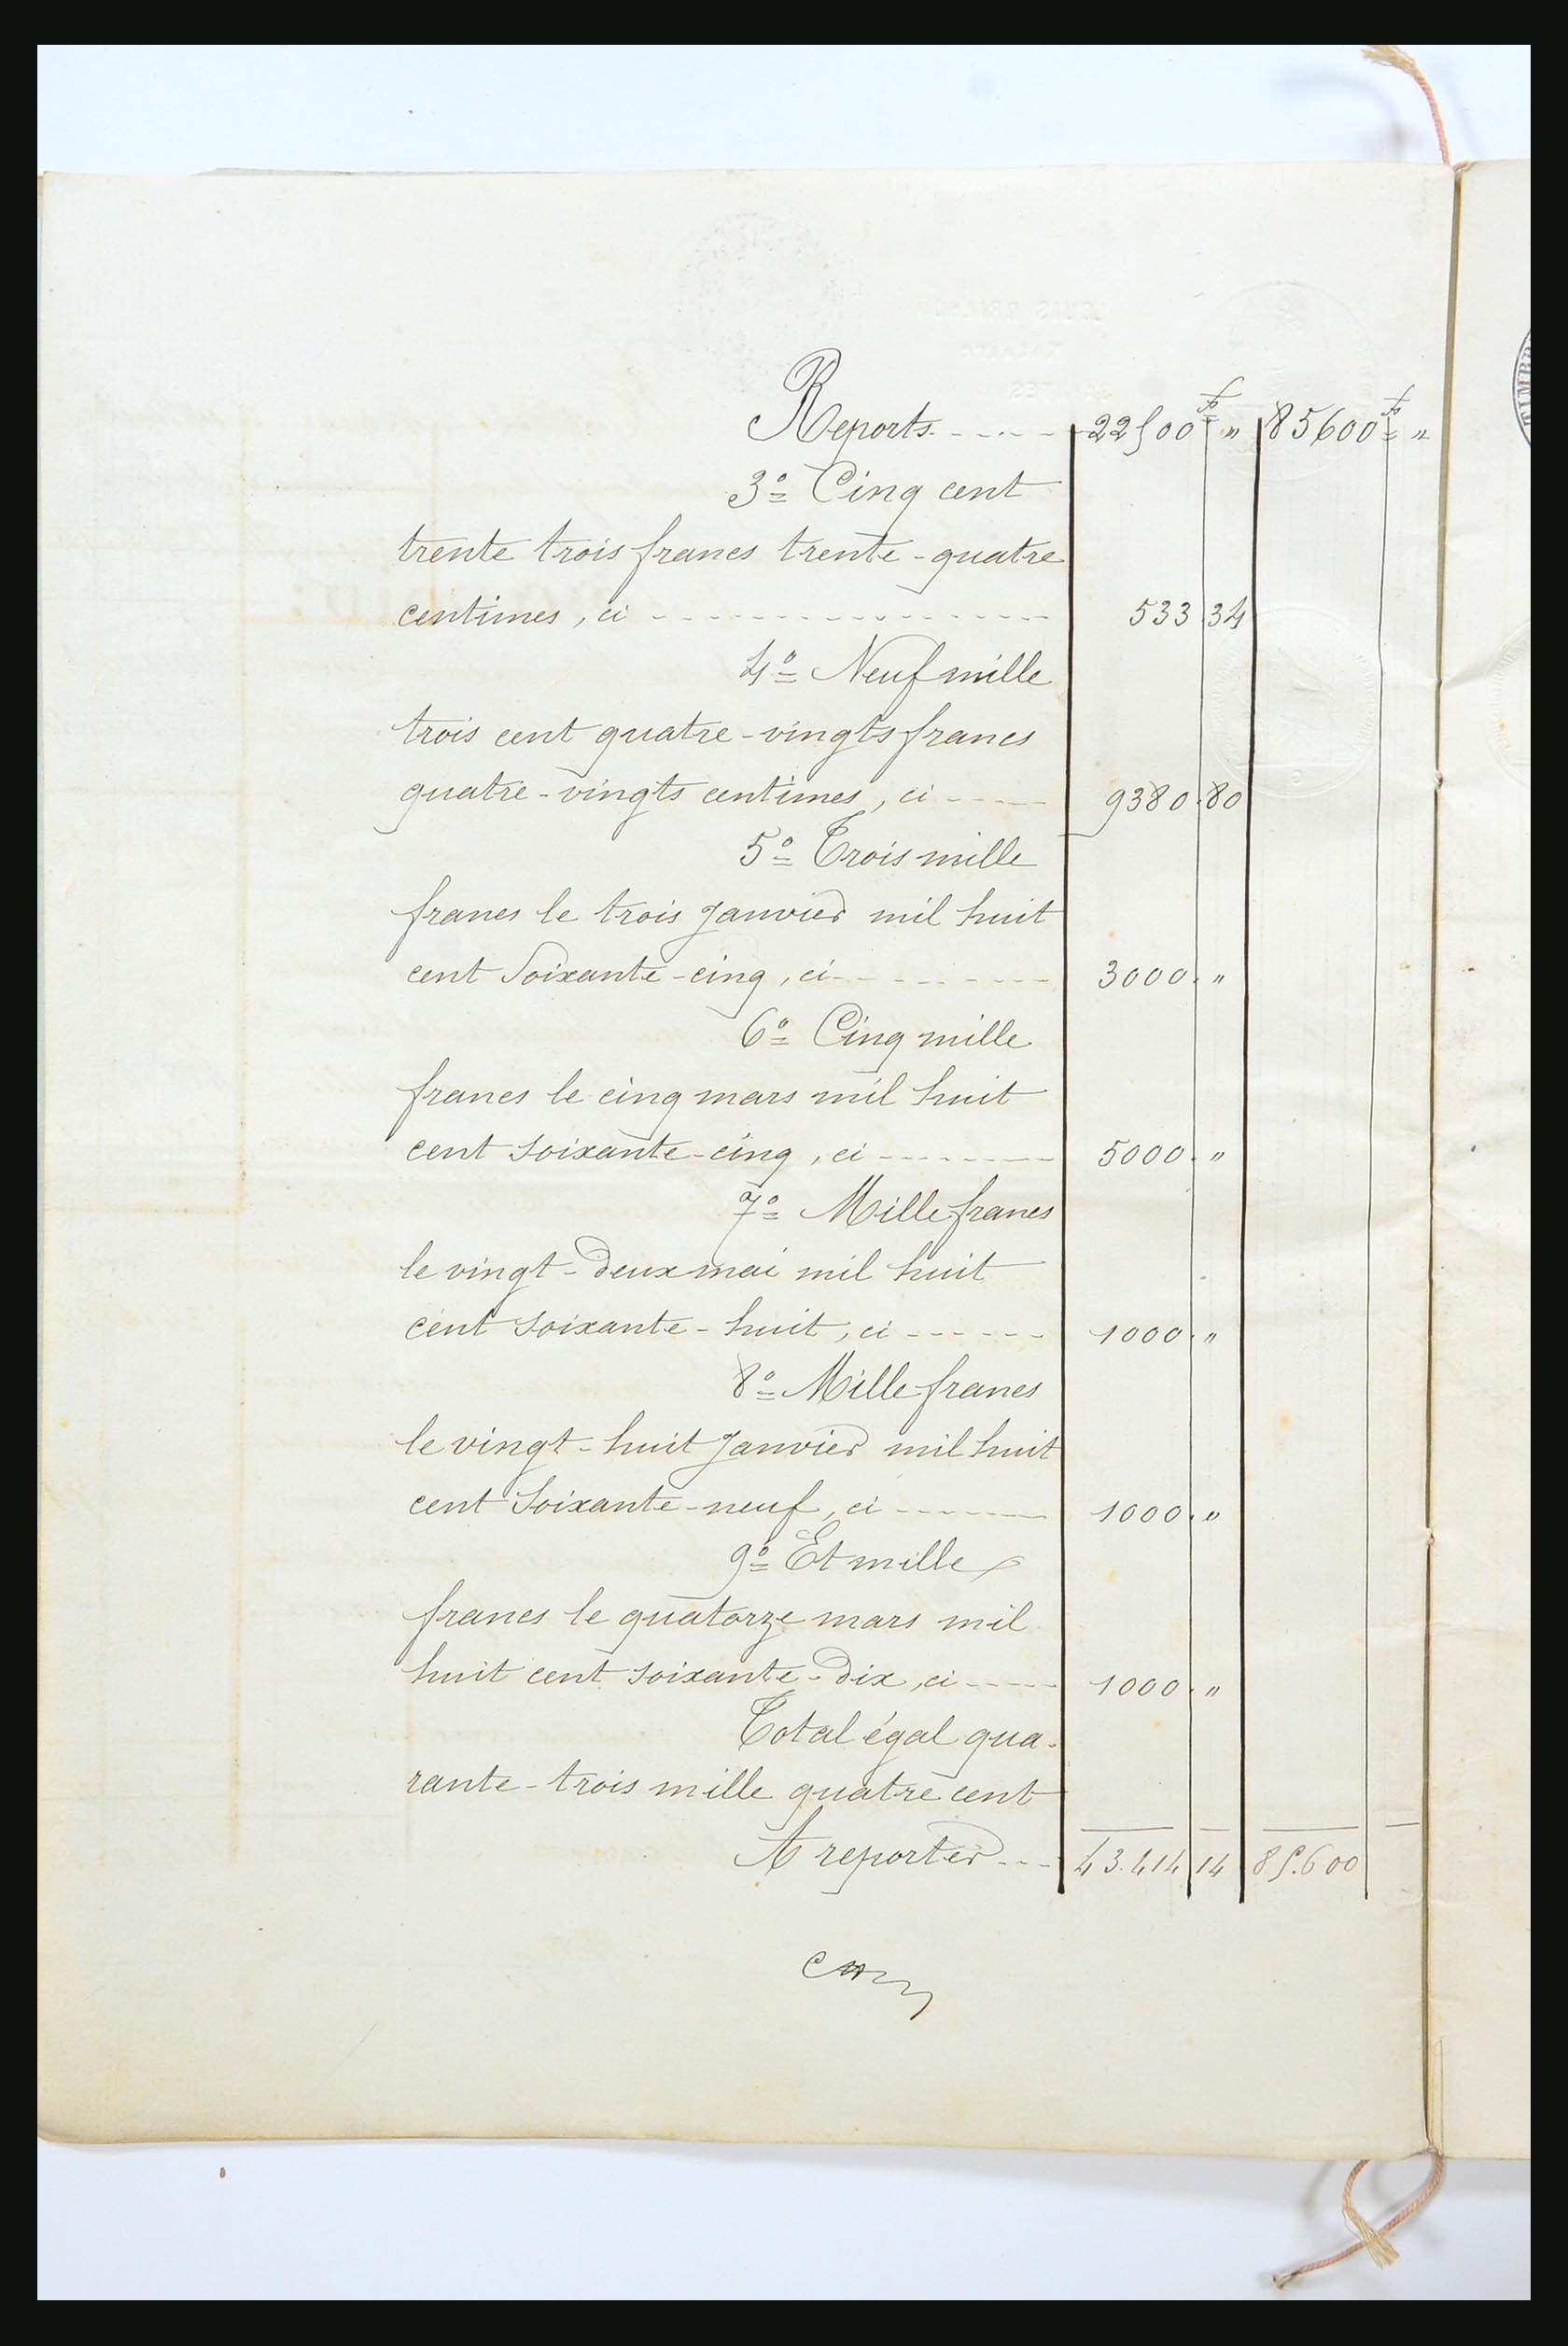 Reports ----- 22500 f " 85600 f "
3º Cinq cent
trente trois francs trente-quatre
centimes, ci ----- 533 34
4º Neuf mille
trois cent quatre-vingts francs
quatre-vingts centimes, ci ----- 9380. 80
5º Trois mille
francs le trois Janvier mil huit
cent Soixante-cinq, ci ----- 3000. "
6º Cinq mille
francs le cinq mars mil huit
cent soixante-cinq, ci ----- 5000. "
7º Mille francs
le vingt-deux mai mil huit
cent soixante-huit, ci ----- 1000. "
8º Mille francs
le vingt-huit Janvier mil huit
cent Soixante-neuf, ci ----- 1000. "
9º Et mille
francs le quatorze mars mil
huit cent soixante-dix, ci ----- 1000. "
Total égal qua-
rante-trois mille quatre cent
A reporter --- 43.414 14 85.600